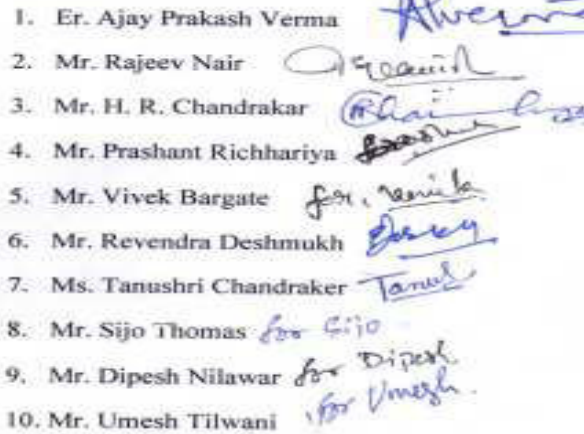 1. Er. Ajay Prakash Verma
2. Mr. Rajeev Nair
3. Mr. H. R. Chandrakar
4. Mr. Prashant Richhariya
5. Mr. Vivek Bargate for,
6. Mr. Revendra Deshmukh
7. Ms. Tanushri Chandraker
8. Mr. Sijo Thomas for Sijo
9. Mr. Dipesh Nilawar for Dipesh
10. Mr. Umesh Tilwani for Umesh.